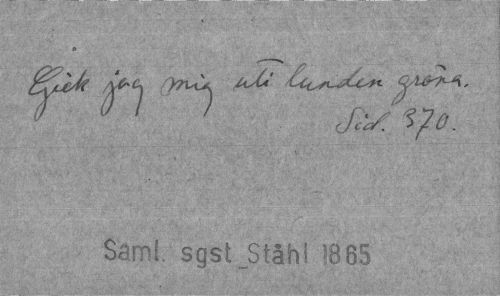 Gick jag mig uti lunden gröna.
Sid. 370.
Saml. sgst_Ståhl 1865